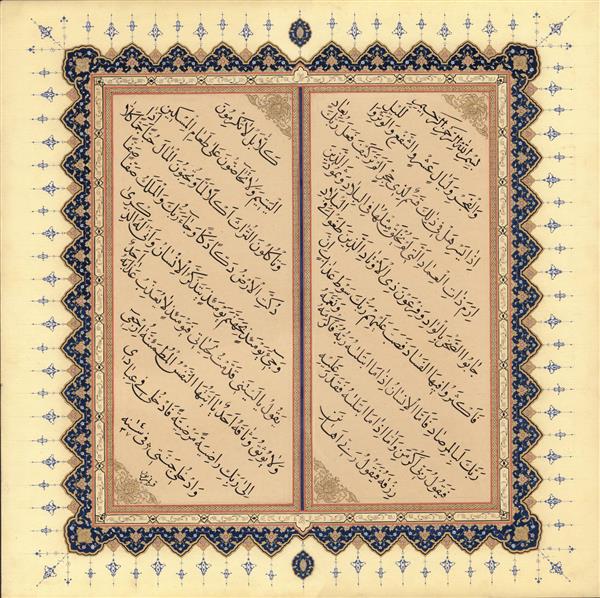 بسم الله الرحمن الرحيم
والفجر وليال عشر والشفع والوتر والليل
اذا يسر هل في ذلك قسم لذي حجر الم تر كيف فعل ربك بعاد
ارم ذات العماد التي لم يخلق مثلها في البلاد وثمود الذين
جابوا الصخر بالواد وفرعون ذي الاوتاد الذين طغوا في البلاد
فاكثروا فيها الفساد فصب عليهم ربك سوط عذاب ان
ربك لبالمرصاد فاما الانسان اذا ما ابتلىه ربه فاكرمه ونعمه
فيقول ربي اكرمن واما اذا ما ابتلىه فقدر عليه
رزقه فيقول ربي اهانن
كلا بل لا تكرمون
اليتيم ولا تحاضون على طعام المسكين
وتاكلون التراث اكلا لما وتحبون المال حبا جما كلا اذا
دكت الارض دكا دكا وجاء ربك والملك صفا صفا
وجيء يومئذ بجهنم يومئذ يتذكر الانسان وانى له الذكرى
يقول يا ليتني قدمت لحياتي فيومئذ لا يعذب عذابه احد
ولا يوثق وثاقه احد يا ايتها النفس المطمئنة ارجعي
الى ربك راضية مرضية فادخلي في عبادي
وادخلي جنتي